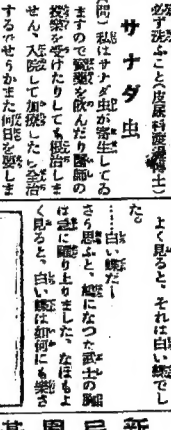 必ず洗ふこと(皮尿科渡邊博士)
サナダ虫
(問)私はサナダ虫が寄生してゐ
ますので驅蟲を飲んだり醫師の
投藥を受けたりしても根治しま
せん、入院して加療したら全治
するでせうかまた何日を要しま
よく見ると、それは白い蝶でし
た。
……白い蝶だ!
さう思ふと、鎧になつた武士の胸
は急に躍り上りました、なほもよ
く見ると、白い蝶は如何にも樂さ